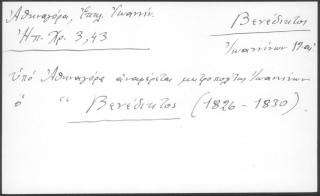 Ἀθηναγόρα, Ἐκκλ. Ἰωανν.
Ἠπ. Χρ. 3, 43
Βενέδικτος
Ἰωαννίνων 19 αἰ
Ὑπὸ Ἀθηναγόρα ἀναφέρεται μητροπολίτης Ἰωαννίνων
ὁ “ Βενέδικτος (1826 - 1830).